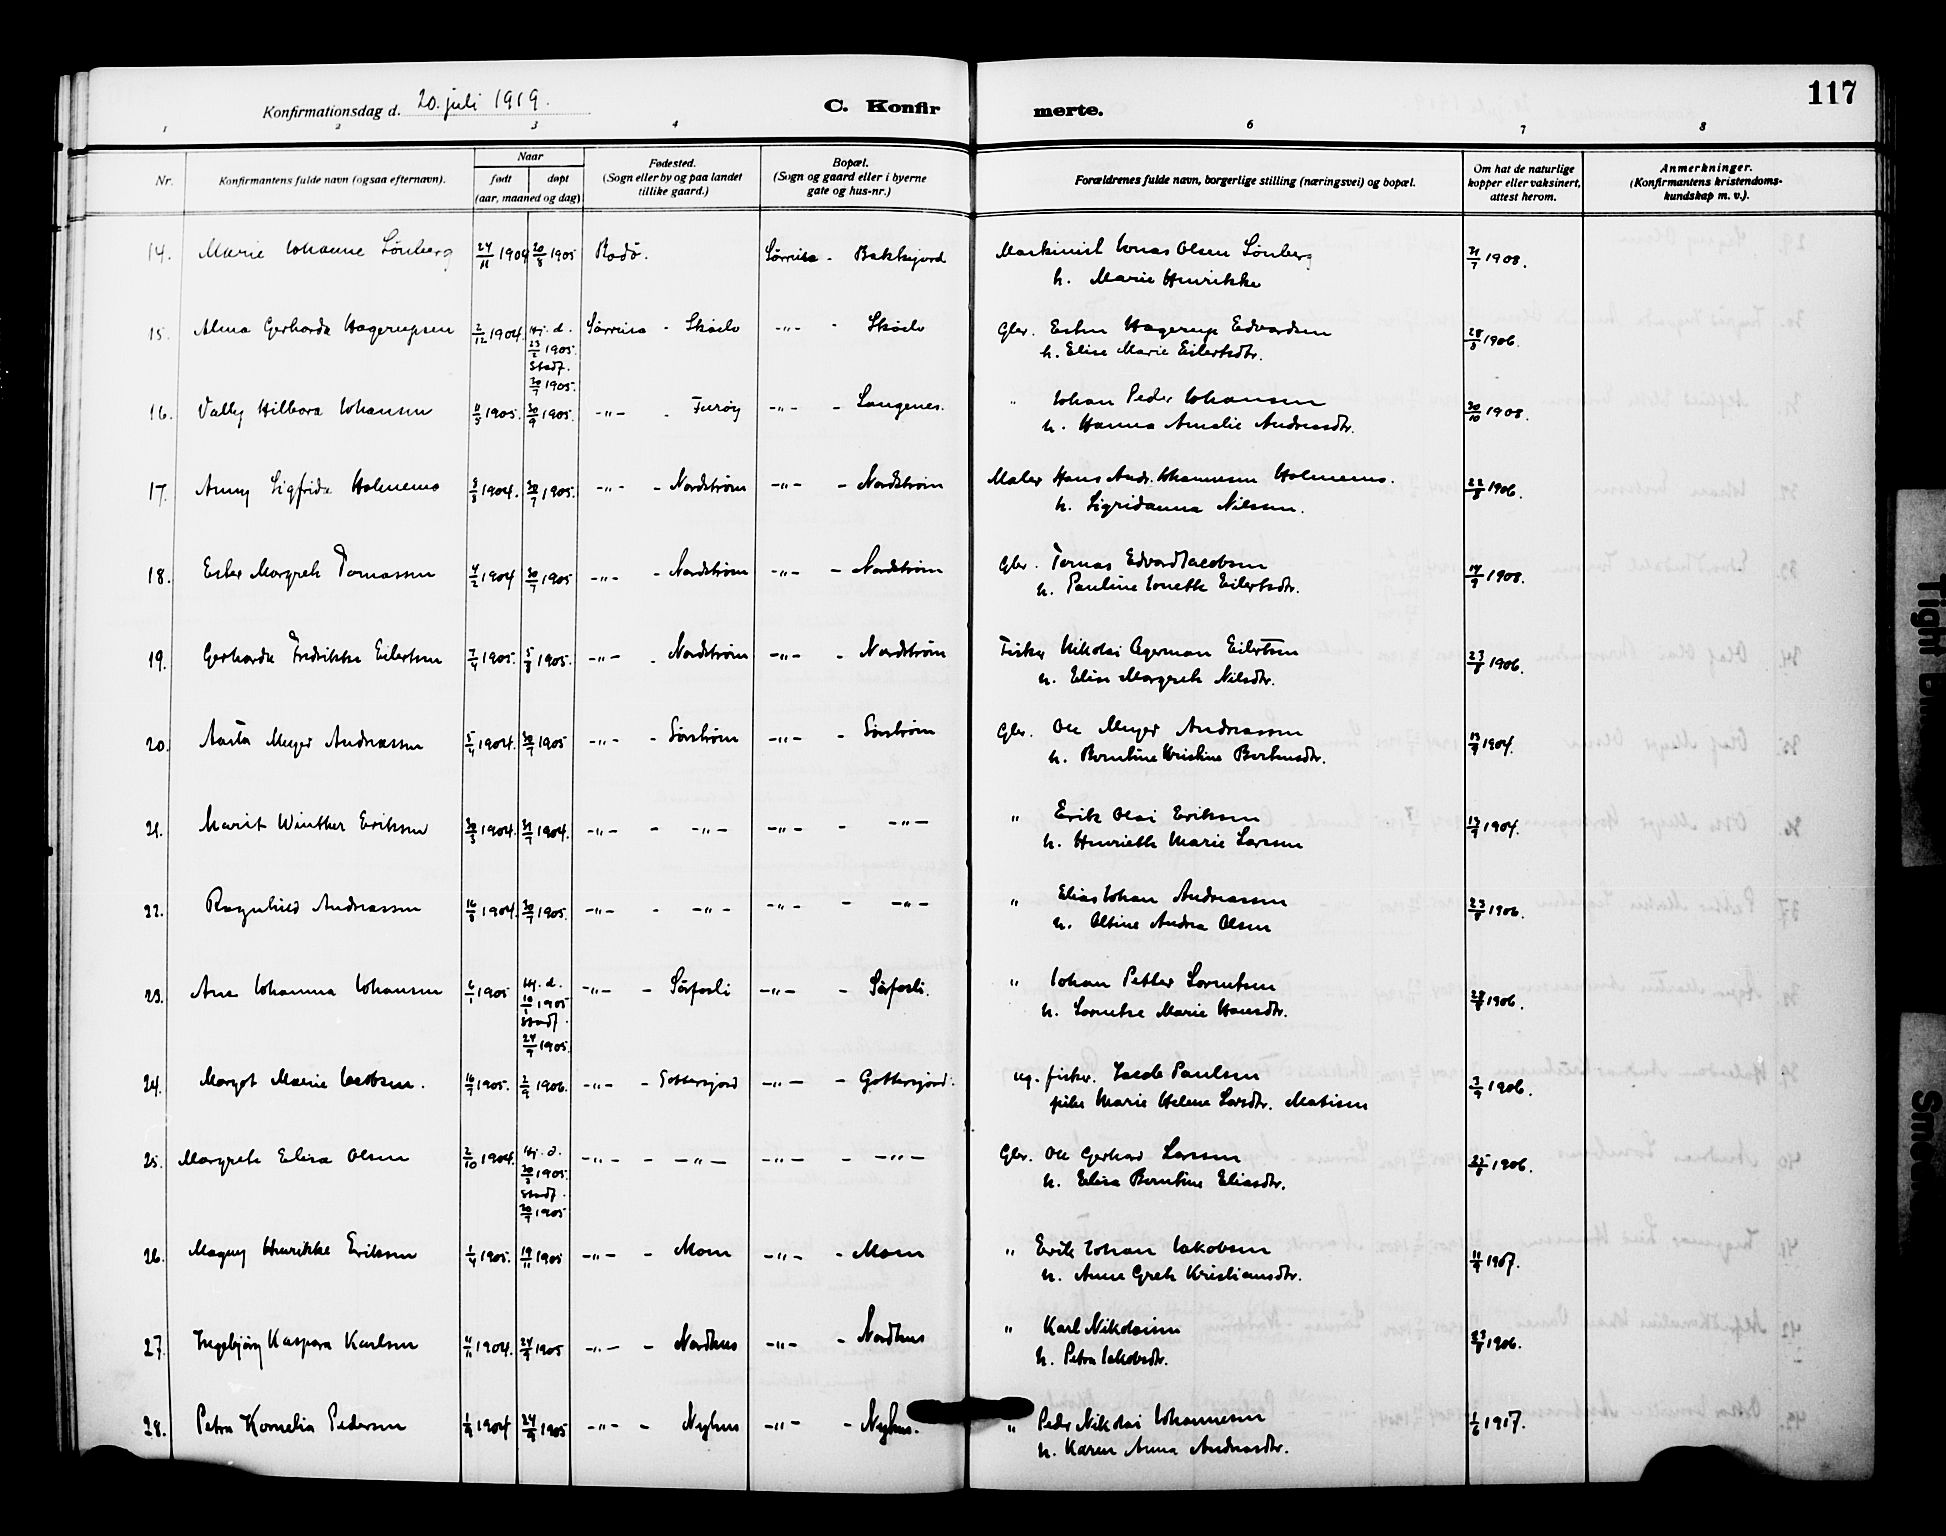 117
Konfirmationsdag d. 20. juli 1919.
C. Konfirmerte.
1 2 3 4 6 7 8
Nr.
Konfirmantens fulde navn (ogsaa efternavn).
Naar
født døpt
(aar, maaned og dag)
Fødested.
(Sogn eller by og paa landet
tillike gaard.)
Bopæl.
(Sogn og gaard eller i byerne
gate og hus-nr.)
Forældrenes fulde navn, borgerlige stilling (næringsvei) og bopæl.
Om hat de naturlige
kopper eller vaksinert,
attest herom.
Anmerkninger.
(Konfirmantens kristendoms-
kundskap m. v.).
14. Marie Johanne Lönberg 24/11 1904 20/8 1905 Bodö. Sørreisa - Bakkejord Maskinist Jonas Olsen Lönberg 21/7 1908.
h. Marie Henrikke
15. Alma Gerharda Hagerupsen 2/12 1904. Hj. d. 23/2 1905. Stadf. 30/7 1905. Sørreisa - Skøelv -"- - Skøelv Gbr. Esten Hagerup Edvardsen 28/8 1906.
h. Elise Marie Eilertsdtr.
16. Valby Hilbora Johansen 11/5 1905. 30/9 1905. -"- - Furøy -"- - Langenes. " Johan Peder Johansen 30/10 1908.
h. Hanna Amalie Andreasdtr.
17. Anny Sigfrida Holmemo 8/8 1904. 30/7 1905. -"- - Nordstrøm -"- - Nordstrøm Maler Hans Andr. Johannesen Holmemo. 22/8 1906.
h. Sigridanna Nilssen.
18. Ester Margreth Tomassen 4/2 1904 30/7 1905 -"- - Nordstrøm -"- - Nordstrøm Gbr. Tomas Edvard Jacobsen 14/9 1908.
h. Pauline Jonette Eilertsdtr.
19. Gerharda Fredrikke Eilertsen 7/4 1905. 5/8 1905. -"- - Nordstrøm -"- - Nordstrøm Fisker Nikolai Agerman Eilertsen 23/8 1906.
h. Elise Margreth Nilsdtr.
20. Aasta Meyer Andreassen 5/4 1904. 30/7 1905 -"- - Sørstrøm -"- - Sørstrøm Gbr. Ole Meyer Andreassen 13/9 1904.
h. Berntine Kristine Berteusdtr.
21. Marit Winther Eriksen 30/3 1904. 31/7 1904. -"- - -"- -"- - -"- " Erik Olai Eriksen 13/9 1904.
h. Henriette Marie Larsen
22. Ragnhild Andreassen 16/8 1904. 30/7 1905. -"- - -"- -"- - -"- " Elias Johan Andreassen 23/8 1906.
h. Oltine Andrea Olsen
23. Ane Johanna Johansen 6/1 1905 Hj. d. 1905 Stadf. 24/9 1905. -"- - Sørfosli -"- - Sørfosli. " Johan Petter Lorentsen 28/8 1906.
h. Lorentse Marie Hansdtr.
24. Margot Marie Jacobsen. 16/7 1905. 2/9 1906. -"- - Gottersjord -"- - Gottersjord. ug. fisker. Jacob Paulsen 3/9 1906.
pike Marie Helene Larsdtr. Matisen
25. Margreth Elisa Olsen 2/10 1904. Hj. d. 1905. Stadf. 30/7 1905 -"- - -"- -"- - -"- Gbr. Ole Gerhard Larssen 25/8 1906.
h. Elisa Berntine Eliasdtr.
26. Magny Henrikke Eriksen 1/4 1905. 19/11 1905 -"- - Moen -"- - Moen " Erik Johan Jakobsen 11/9 1907.
h. Anne Greth Kristiansdtr.
27. Ingebjørg Kaspara Karlsen 4/11 1904. 24/9 1905 -"- - Nordhus -"- - Nordhus " Karl Nikolaisen 23/8 1906.
h. Petra Jakobsdtr.
28. Petra Kornelia Pedersen 1904 24/9 1905 -"- - Nyhus -"- - Nyhus. " Peder Nikolai Johannesen 1/6 1917.
h. Karen Anna Andreasdtr.